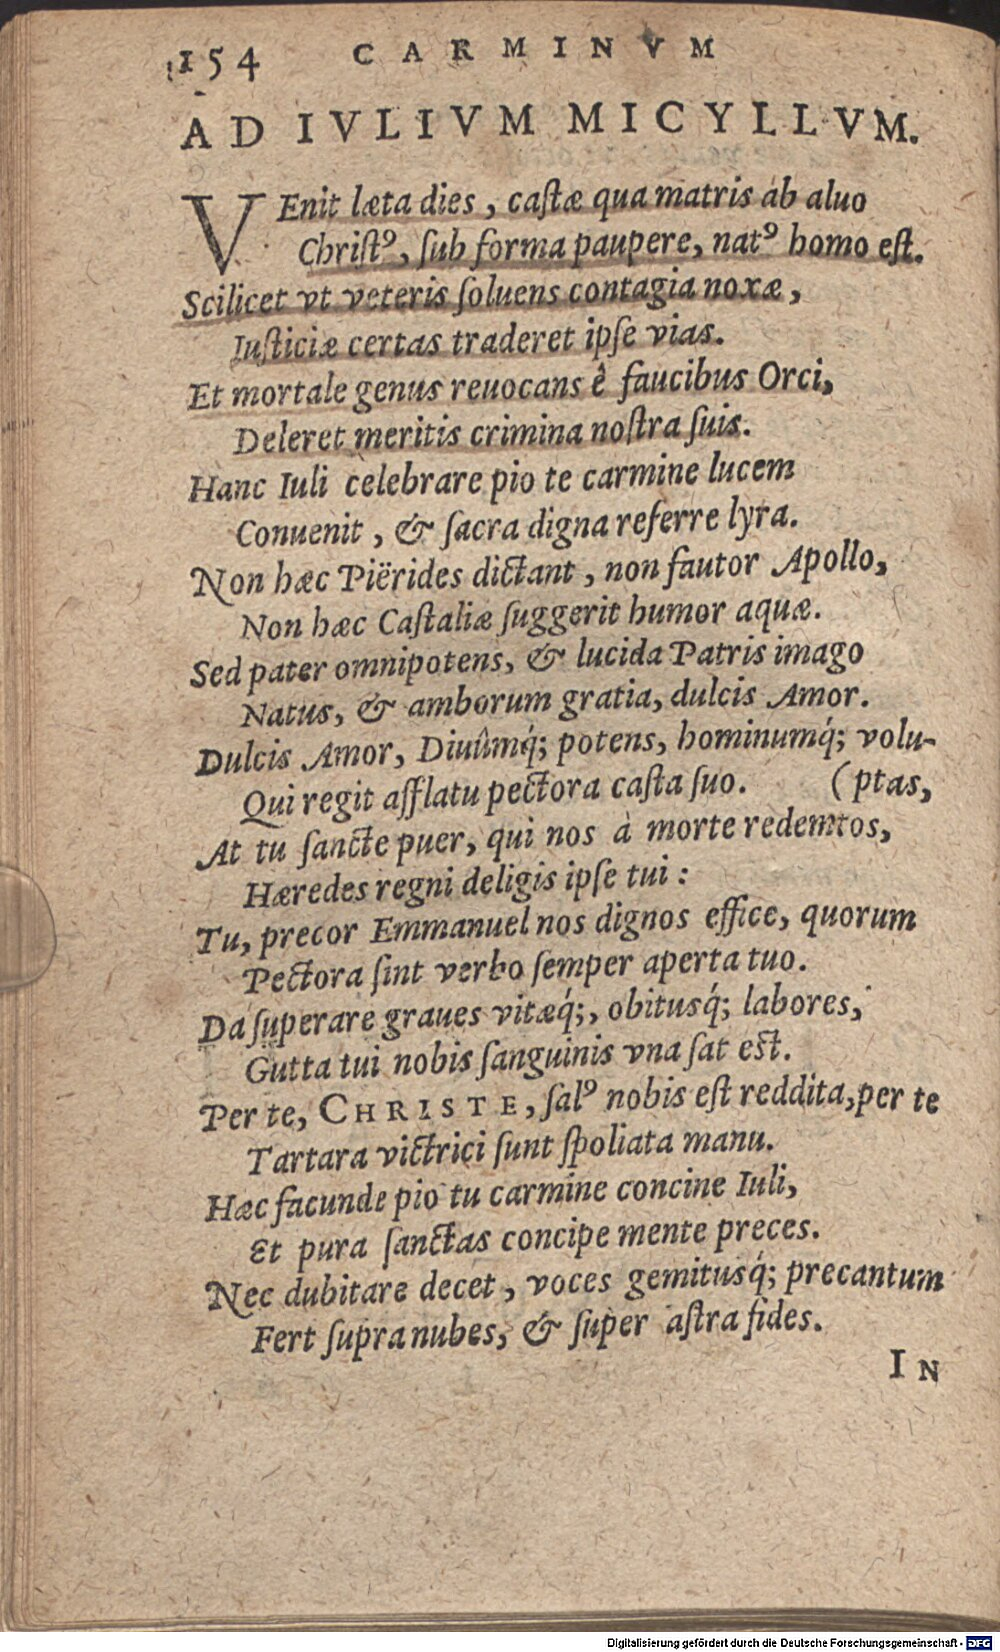 154 CARMINVM
AD IVLIVM MICYLLVM.
VEnit læta dies, castæ qua matris ab aluo
Christꝰ, sub forma paupere, natꝰ homo est.
Scilicet vt veteris soluens contagia noxæ,
Iusticiæ certas traderet ipse vias.
Et mortale genus reuocans ê faucibus Orci,
Deleret meritis crimina nostra suis.
Hanc Iuli celebrare pio te carmine lucem
Conuenit, & sacra digna referre lyra.
Non hæc Piërides dictant, non fautor Apollo,
Non hæc Castaliæ suggerit humor aquæ.
Sed pater omnipotens, & lucida Patris imago
Natus, & amborum gratia, dulcis Amor.
Dulcis Amor, Diuûmq́; potens, hominumq́; volu-
Qui regit afflatu pectora casta suo. (ptas,
At tu sancte puer, qui nos à morte redemtos,
Hæredes regni deligis ipse tui:
Tu, precor Emmanuel nos dignos effice, quorum
Pectora sint verbo semper aperta tuo.
Da superare graues vitæq́;, obitusq́; labores,
Gutta tui nobis sanguinis vna sat est.
Per te, CHRISTE, salꝰ nobis est reddita, per te
Tartara victrici sunt spoliata manu.
Hæc facunde pio tu carmine concine Iuli,
Et pura sanctas concipe mente preces.
Nec dubitare decet, voces gemitusq́; precantum
Fert supra nubes, & super astra fides.
IN
Digitalisierung gefördert durch die Deutsche Forschungsgemeinschaft - DFG